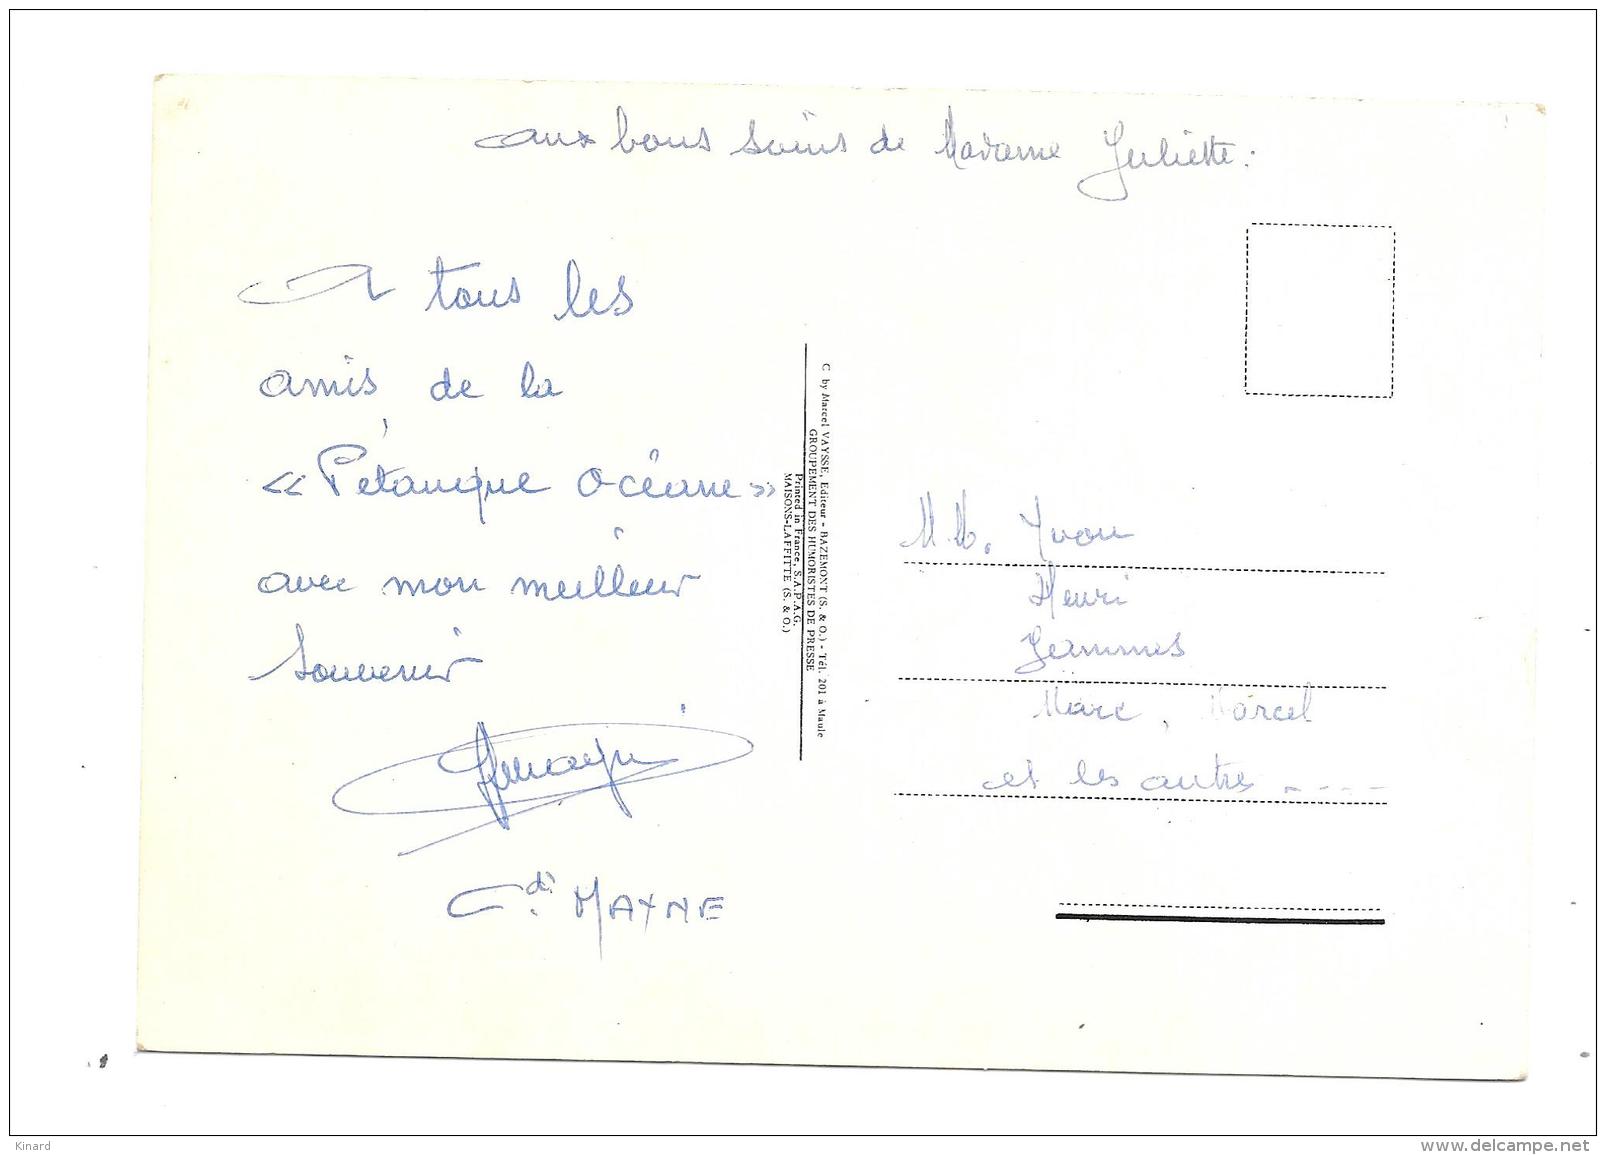 aux bons soins de Madame Juliette.
A tous les
amis de la
« Pétanque Océane »
avec mon meilleur
souvenir
Cdt. MAYNE
C by Marcel VAYSSE, Editeur - BAZEMONT (S. & O.) - Tél. 201 à Maule
GROUPEMENT DES HUMORISTES DE PRESSE
Printed in France, S.A.P.A.G.
MAISONS-LAFFITTE (S. & O.)
MM. Yvon
Henri
Jammes
Marc, Marcel
et les autres - - - -
Kinard
www.delcampe.net